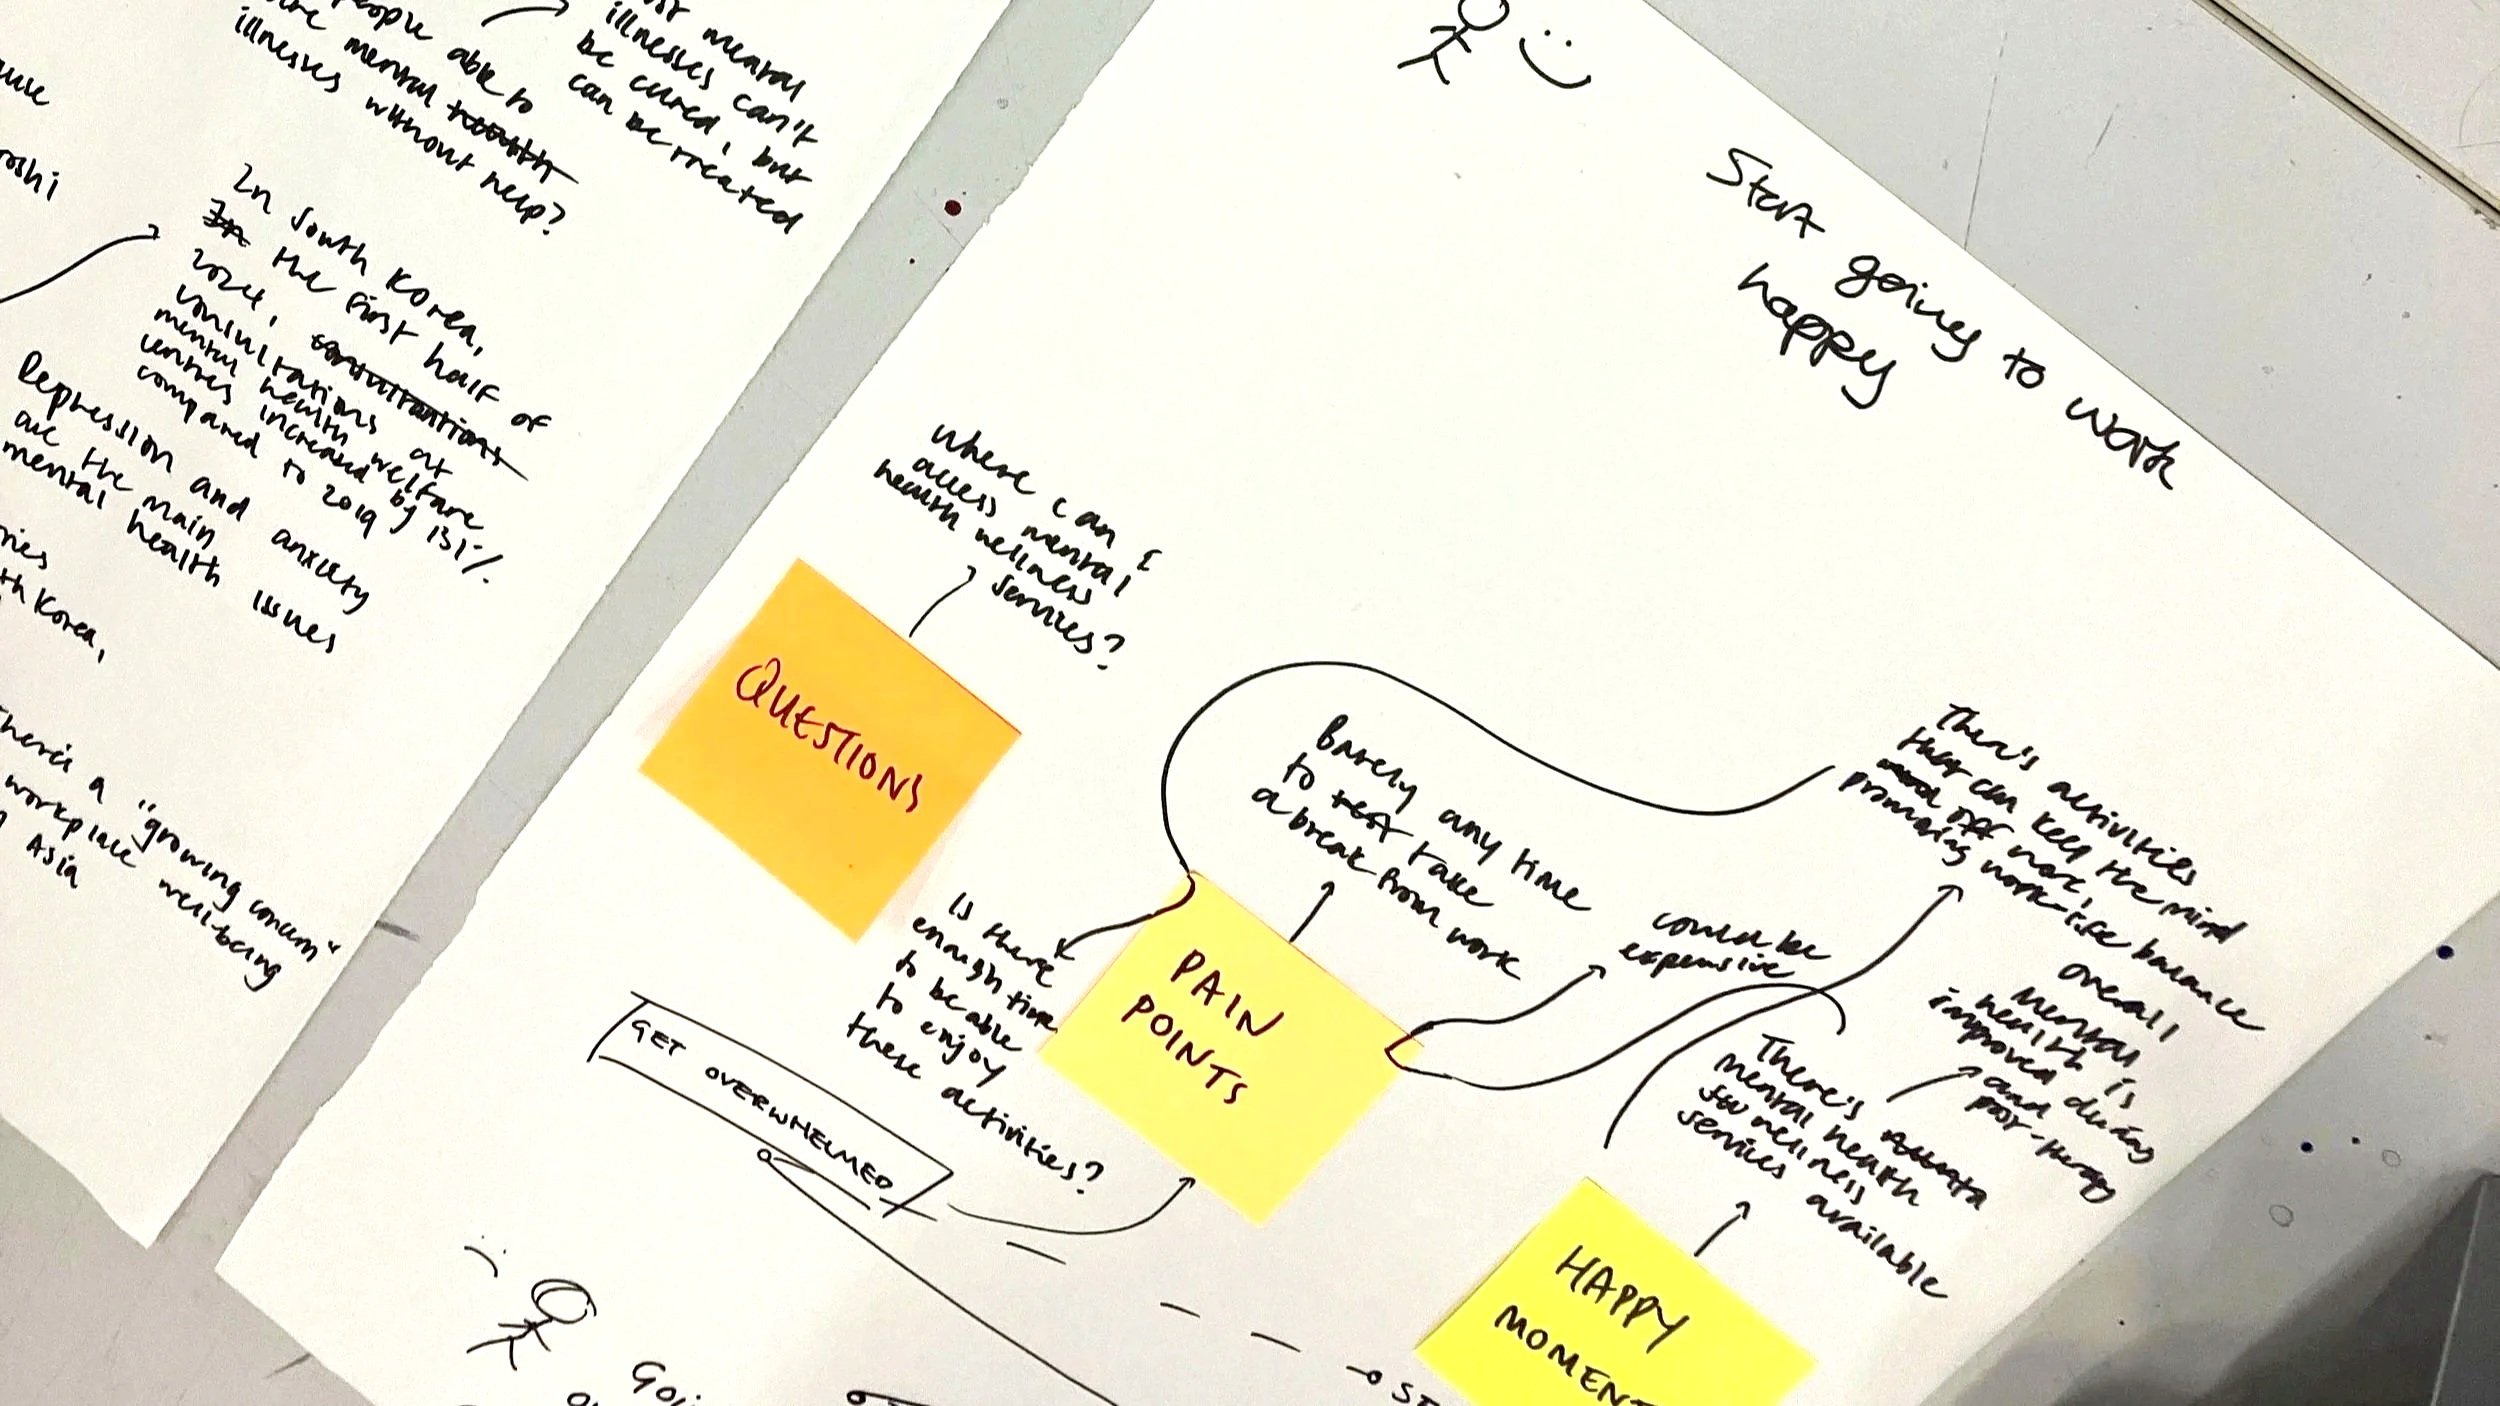 people able to
mental health
illnesses without help?
mental
illnesses can't
be cured, but
can be treated
In South Korea,
In the first half of
2024, consultations
consultations at
mental health welfare
centres increased by 131%
compared to 2019
Depression and anxiety
are the main
mental health issues
Korea,
There's a "growing concern"
workplace well-being
Asia
Start going to work
happy
where can I
access mental
health wellness
services?
QUESTIONS
Is there
enough time
to be able
to enjoy
these activities?
Barely any time
to rest take
a break from work
PAIN
POINTS
could be
expensive
There's activities
that can keep the mind
off work,
promoting work-life balance
overall
mental
health is
improved during
and
post-therapy
There's
mental health
wellness
services available
HAPPY
MOMENT
GET OVERWHELMED